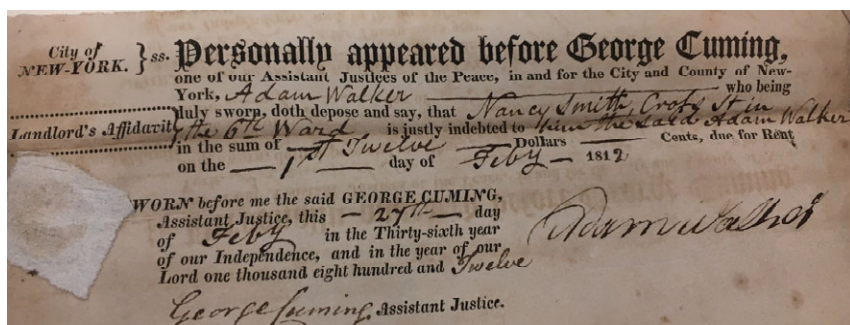 City of
NEW-YORK. } ss. Personally appeared before George Cuming,
one of our Assistant Justices of the Peace, in and for the City and County of New-
York, Adam Walker who being
duly sworn, doth depose and say, that Nancy Smith, Cross St in
Landlord's Affidavit the 6th Ward is justly indebted to him the said Adam Walker
in the sum of Twelve Dollars Cents, due for Rent
on the 1st day of Feby 1812
WORN before me the said GEORGE CUMING,
Assistant Justice, this 27th day
of Feby in the Thirty-sixth year
of our Independence, and in the year of our
Lord one thousand eight hundred and Twelve
Adam Walker
George Cuming Assistant Justice.